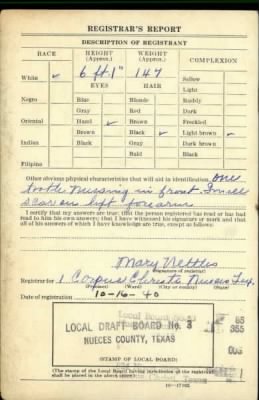 REGISTRAR'S REPORT
DESCRIPTION OF REGISTRANT
RACE HEIGHT (Approx.) WEIGHT (Approx.) COMPLEXION
White ✓ 6 ft. 1" 147 Sallow
EYES HAIR Light
Negro Blue Blonde Ruddy
Gray Red Dark
Oriental Hazel ✓ Brown Freckled
Brown Black ✓ Light brown ✓
Indian Black Gray Dark brown
Bald Black
Filipino
Other obvious physical characteristics that will aid in identification one
tooth missing in front Small
scar on left forearm
I certify that my answers are true; that the person registered has read or has had
read to him his own answers; that I have witnessed his signature or mark and that
all of his answers of which I have knowledge are true, except as follows:
Mary Nettles
(Signature of registrar)
Registrar for 1 Corpus Christi Nueces Tex.
(Precinct) (Ward) (City or county) (State)
Date of registration 10-16-40
LOCAL DRAFT BOARD No. 3
NUECES COUNTY, TEXAS
85
355
(STAMP OF LOCAL BOARD)
(The stamp of the Local Board having jurisdiction of the registrant
shall be placed in the above space.)